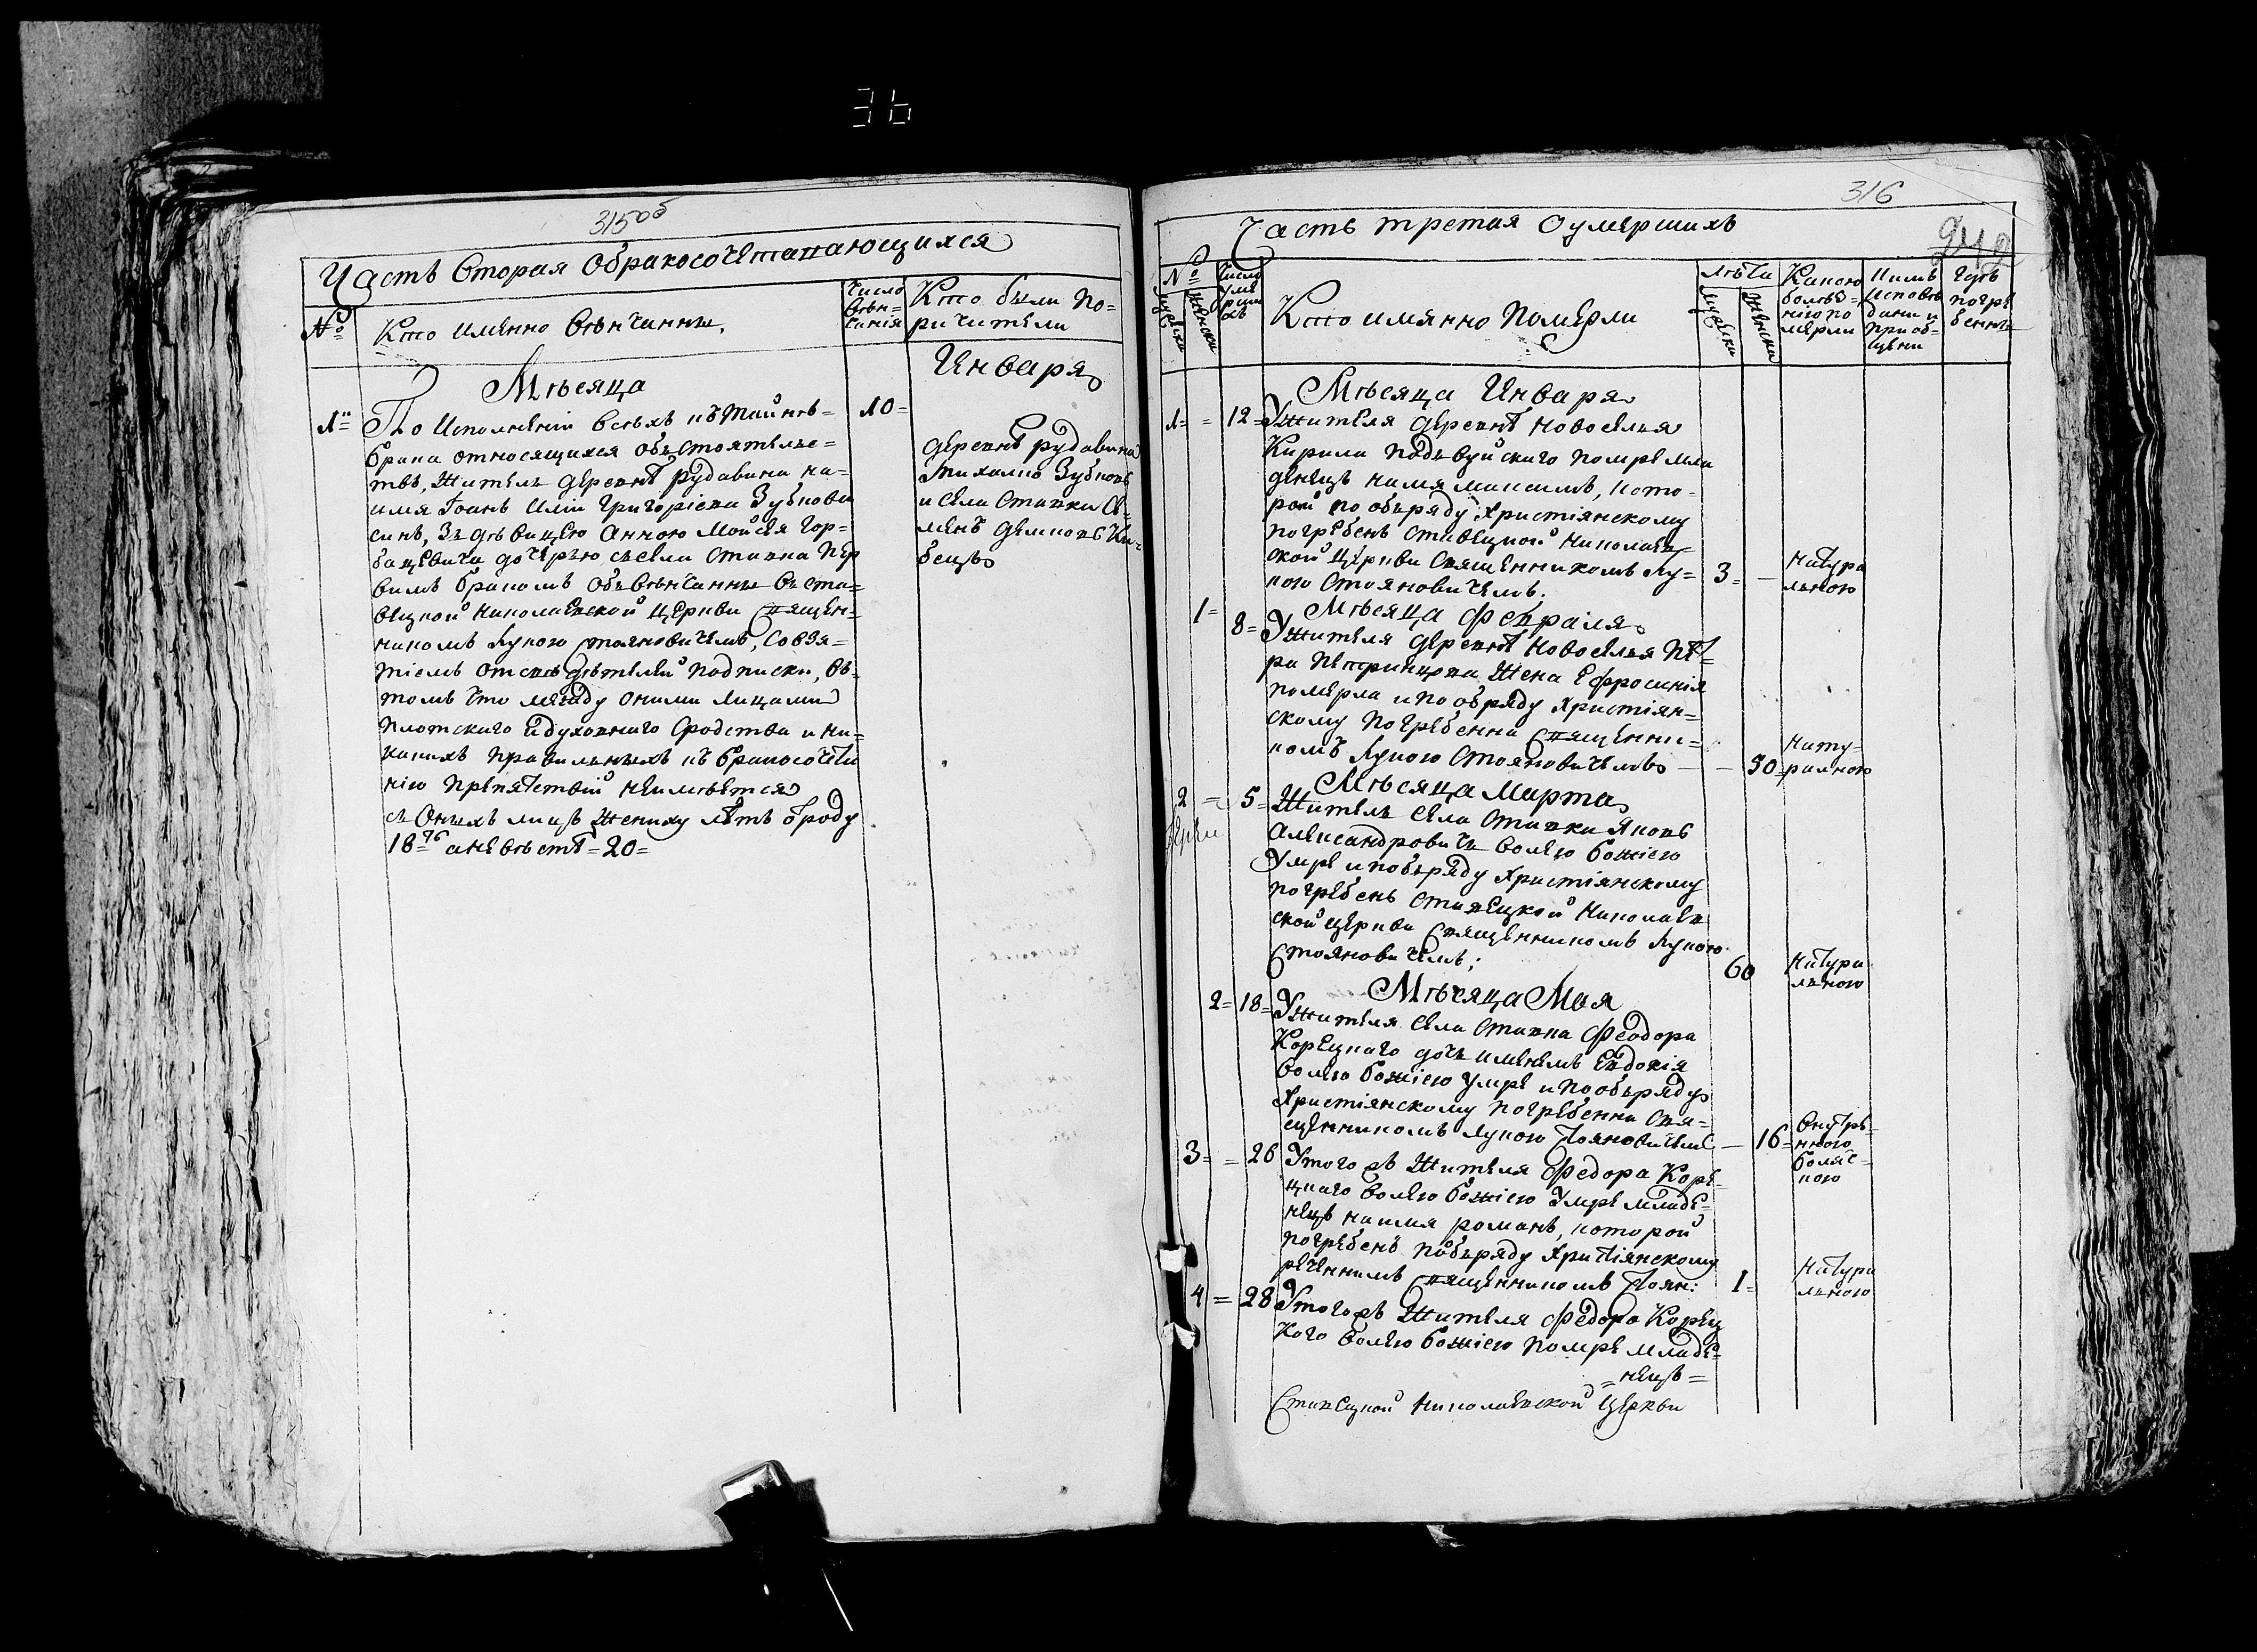 36
315об
Часть Вторая Обракосочетавающихся
№
Кто имянно венчанны,
Число
венч-
чанія
Кто были по-
ручители
Мѣсяца
Инваря
1
10
По исполненіи всѣхъ къ тайнѣ
брака относящихся обстоятельс-
твъ, житель деревнѣ Рудавина на-
имя Іоанъ Григоріева Зубкова
синъ, зъ дѣвицею Анною Мойсея Гор-
бацевича дочерью съ села Ставка пер
вимъ бракомъ обвѣнчанны въ ста-
вецкой Николаевской церкви священ-
никомъ Лукою Стояновичемъ, со взя-
тіемъ отъ свѣдѣтелей подписки, въ
томъ что между оними лицами
плотского и духовного сродства и ни-
какихъ правильныхъ къ бракосочета
нію препятствій неимѣется
съ оныхъ лицъ жениху лѣтъ отроду
18 а невѣстѣ 20
деревнѣ Рудавина
Михайло Зубковъ
и села Ставки Се-
менъ Демковъ
316
Часть третая о умершихъ
№
мужски
женски
Число
уме
рши
хъ
Кто имянно померли
Лѣта
мужски
женски
Какою
болѣз-
нію по
мерли
Кимъ
исповѣ
дани и
приоб-
щени
Гдѣ
погре
бенны
Мѣсяца Инваря
1 = 12 У жителя деревнѣ Новоселья
Кирила Подвуйского помре мла
денецъ наимя Максимъ, кото-
рой по обряду христіянскому
погребенъ ставецкой Николаев
ской церкви священникомъ Лу-
кою Стояновичемъ. 3 Натура
льною
Мѣсяца Февраля
1 8 У жителя деревнѣ Новоселья Пет
ра жена Ефросинія
померла и по обряду христіян-
скому погребенна священни-
комъ Лукою Стояновичемъ 50 Нату-
ралною
Мѣсяца Марта
2 = 5 Житель села Ставки Яковъ
Александровичъ волею божіею
умре и по обряду христіянскому
погребенъ ставецкой Николаев
ской церкви священникомъ Лукою
Стояновичемъ; 60 Натура
льною
Мѣсяца Мая
2 = 18 У жителя села Ставка Феодора
Корецкаго дочь именемъ Евдокія
волею божіею умре и по обряду
христіянскому погребенна свя-
щенникомъ Лукою Стояновичемъ 16 Внутре-
нною
болѣс-
ною
3 = 26 У тогожъ жителя Федора Коре-
цкаго волею божіею умре младе-
нецъ наимя Романъ, которой
погребенъ по обряду христіянскому
реченнимъ священникомъ Стоян: 1 Натура
льною
4 = 28 У тогожъ жителя Федора Корец
кого волею божіею помре младе-
нецъ
Ставецкой Николаевской церкви